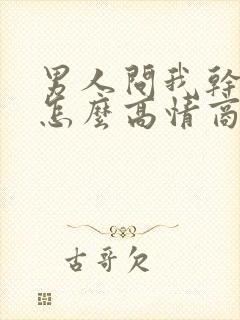 男人問我幹
怎麼高情商
古哥欠